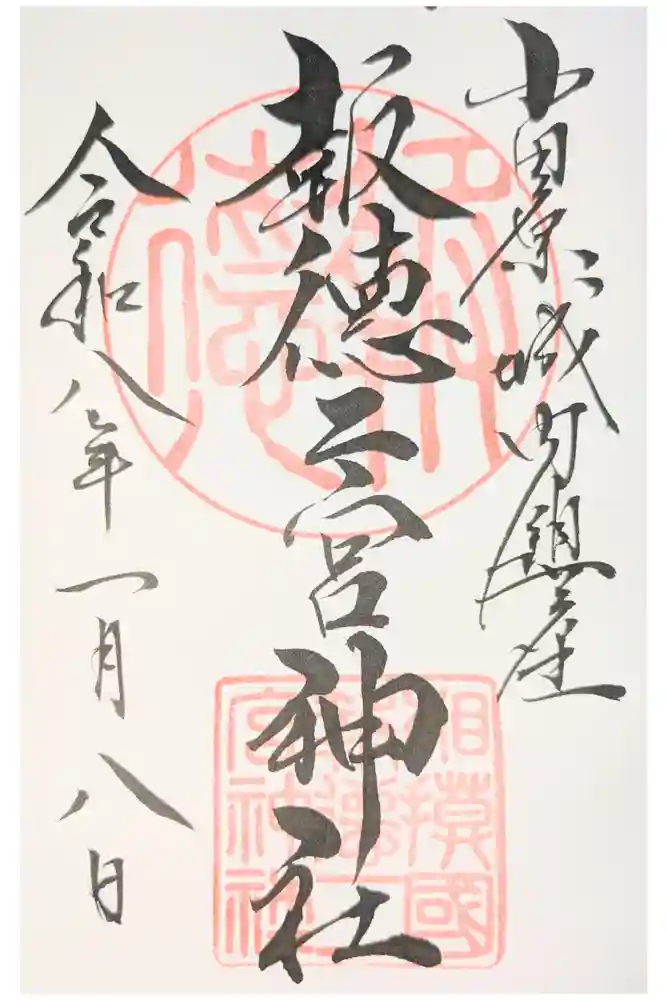 小田原城内鎮座
報徳二宮神社
令和八年一月八日
報徳
相摸國
報徳二
宮神社